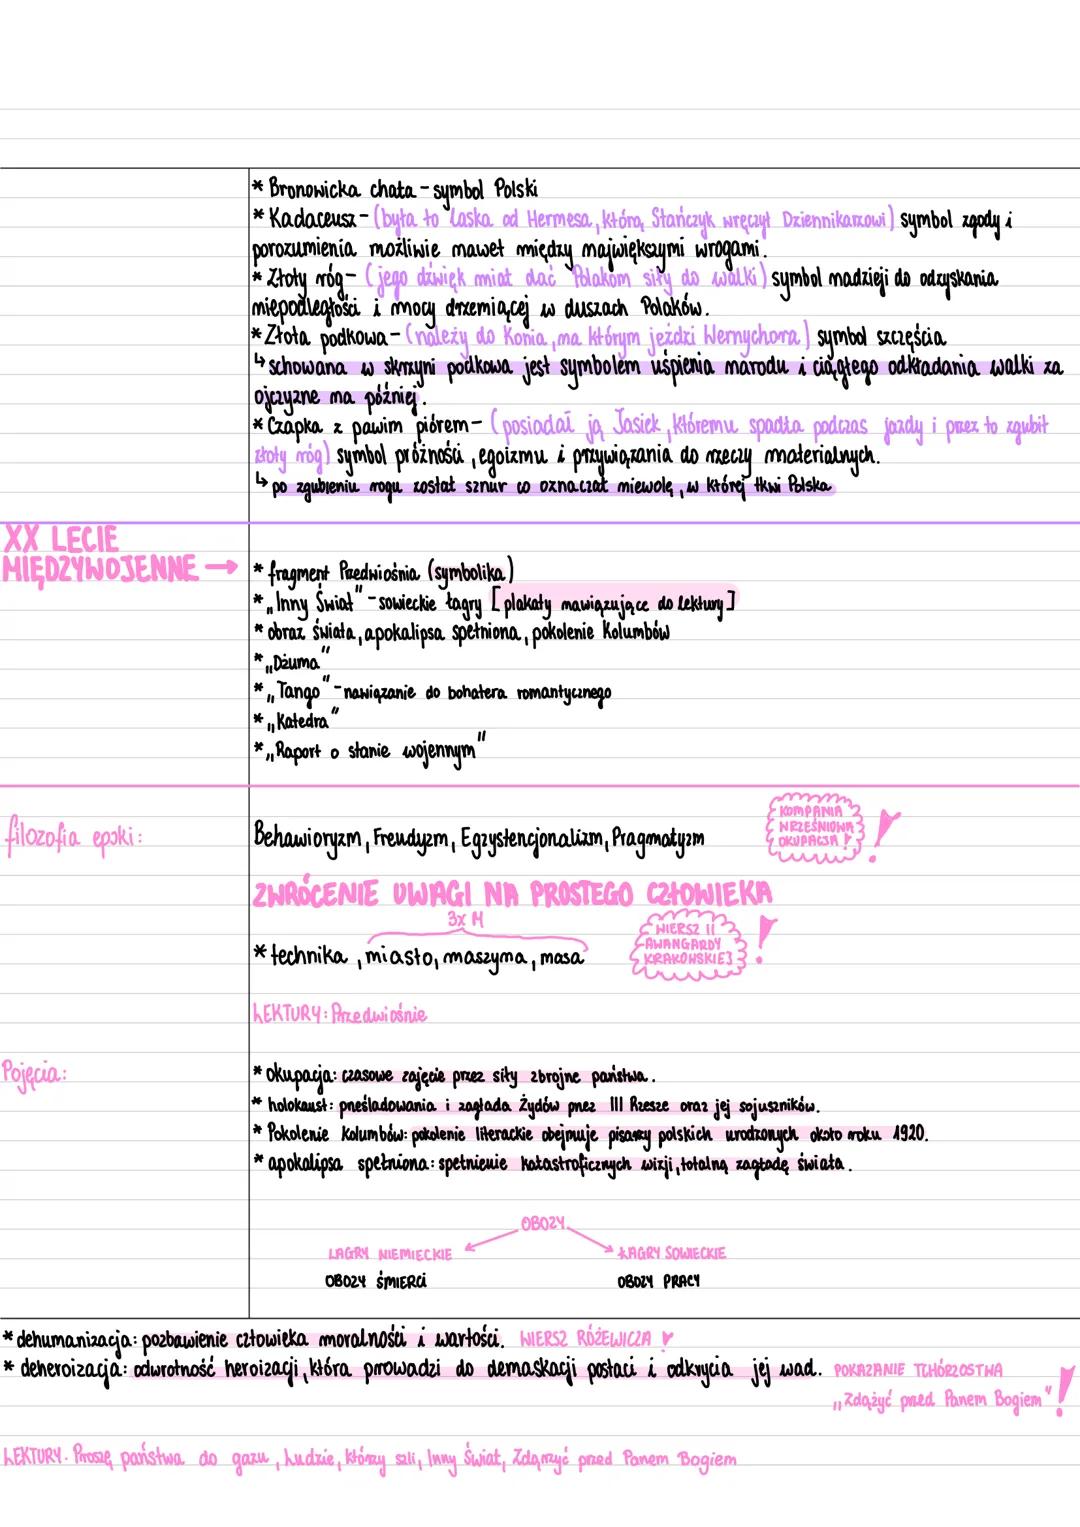 * Bronowicka chata - symbol Polski
* Kadaceusz - (była to laska od Hermesa, którą Stańczyk wręczył Dziennikarzowi) symbol zgody i
porozumienia możliwie nawet między największymi wrogami.
* Złoty róg - (jego dźwięk miał dać Polakom siły do walki) symbol nadzieji do odzyskania
niepodległości i mocy drzemiącej w duszach Polaków.
* Złota podkowa - (należy do Konia, na którym jeździ Wernychora) symbol szczęścia
↳ schowana w skrzyni podkowa jest symbolem uśpienia narodu i ciągłego odkładania walki za
ojczyznę na później.
* Czapka z pawim piórem - (posiadał ją Jasiek, któremu spadła podczas jazdy i przez to zgubił
złoty róg) symbol próżności, egoizmu i przywiązania do rzeczy materialnych.
↳ po zgubieniu rogu został sznur co oznaczał niewolę, w której tkwi Polska
XX LECIE
MIĘDZYWOJENNE →
* fragment Przedwiośnia (symbolika)
* „Inny Świat" - sowieckie łagry [plakaty nawiązujące do lektury]
* obraz świata, apokalipsa spełniona, pokolenie Kolumbów
* „Dżuma"
* „Tango" - nawiązanie do bohatera romantycznego
* „Katedra"
* „Raport o stanie wojennym"
filozofia epoki:
Behawioryzm, Freudyzm, Egzystencjonalizm, Pragmatyzm
KOMPANIA
WRZEŚNIOWA
OKUPACJA !
!
ZWRÓCENIE UWAGI NA PROSTEGO CZŁOWIEKA
3x M
* technika, miasto, maszyna, masa
WIERSZ II
AWANGARDY
KRAKOWSKIEJ
!
LEKTURY: Przedwiośnie
Pojęcia:
* okupacja: czasowe zajęcie przez siły zbrojne państwa.
* holokaust: prześladowania i zagłada Żydów przez III Rzesze oraz jej sojuszników.
* Pokolenie Kolumbów: pokolenie literackie obejmuje pisarzy polskich urodzonych około roku 1920.
* apokalipsa spełniona: spełnienie katastroficznych wizji, totalną zagładę świata.
OBOZY
LAGRY NIEMIECKIE
ŁAGRY SOWIECKIE
OBOZY ŚMIERCI
OBOZY PRACY
* dehumanizacja: pozbawienie człowieka moralności i wartości. WIERSZ RÓŻEWICZA !
* deheroizacja: odwrotność heroizacji, która prowadzi do demaskacji postaci i odkrycia jej wad. POKAZANIE TCHÓRZOSTWA
„Zdążyć przed Panem Bogiem" !
LEKTURY: Proszę państwa do gazu, Ludzie, którzy szli, Inny Świat, Zdążyć przed Panem Bogiem